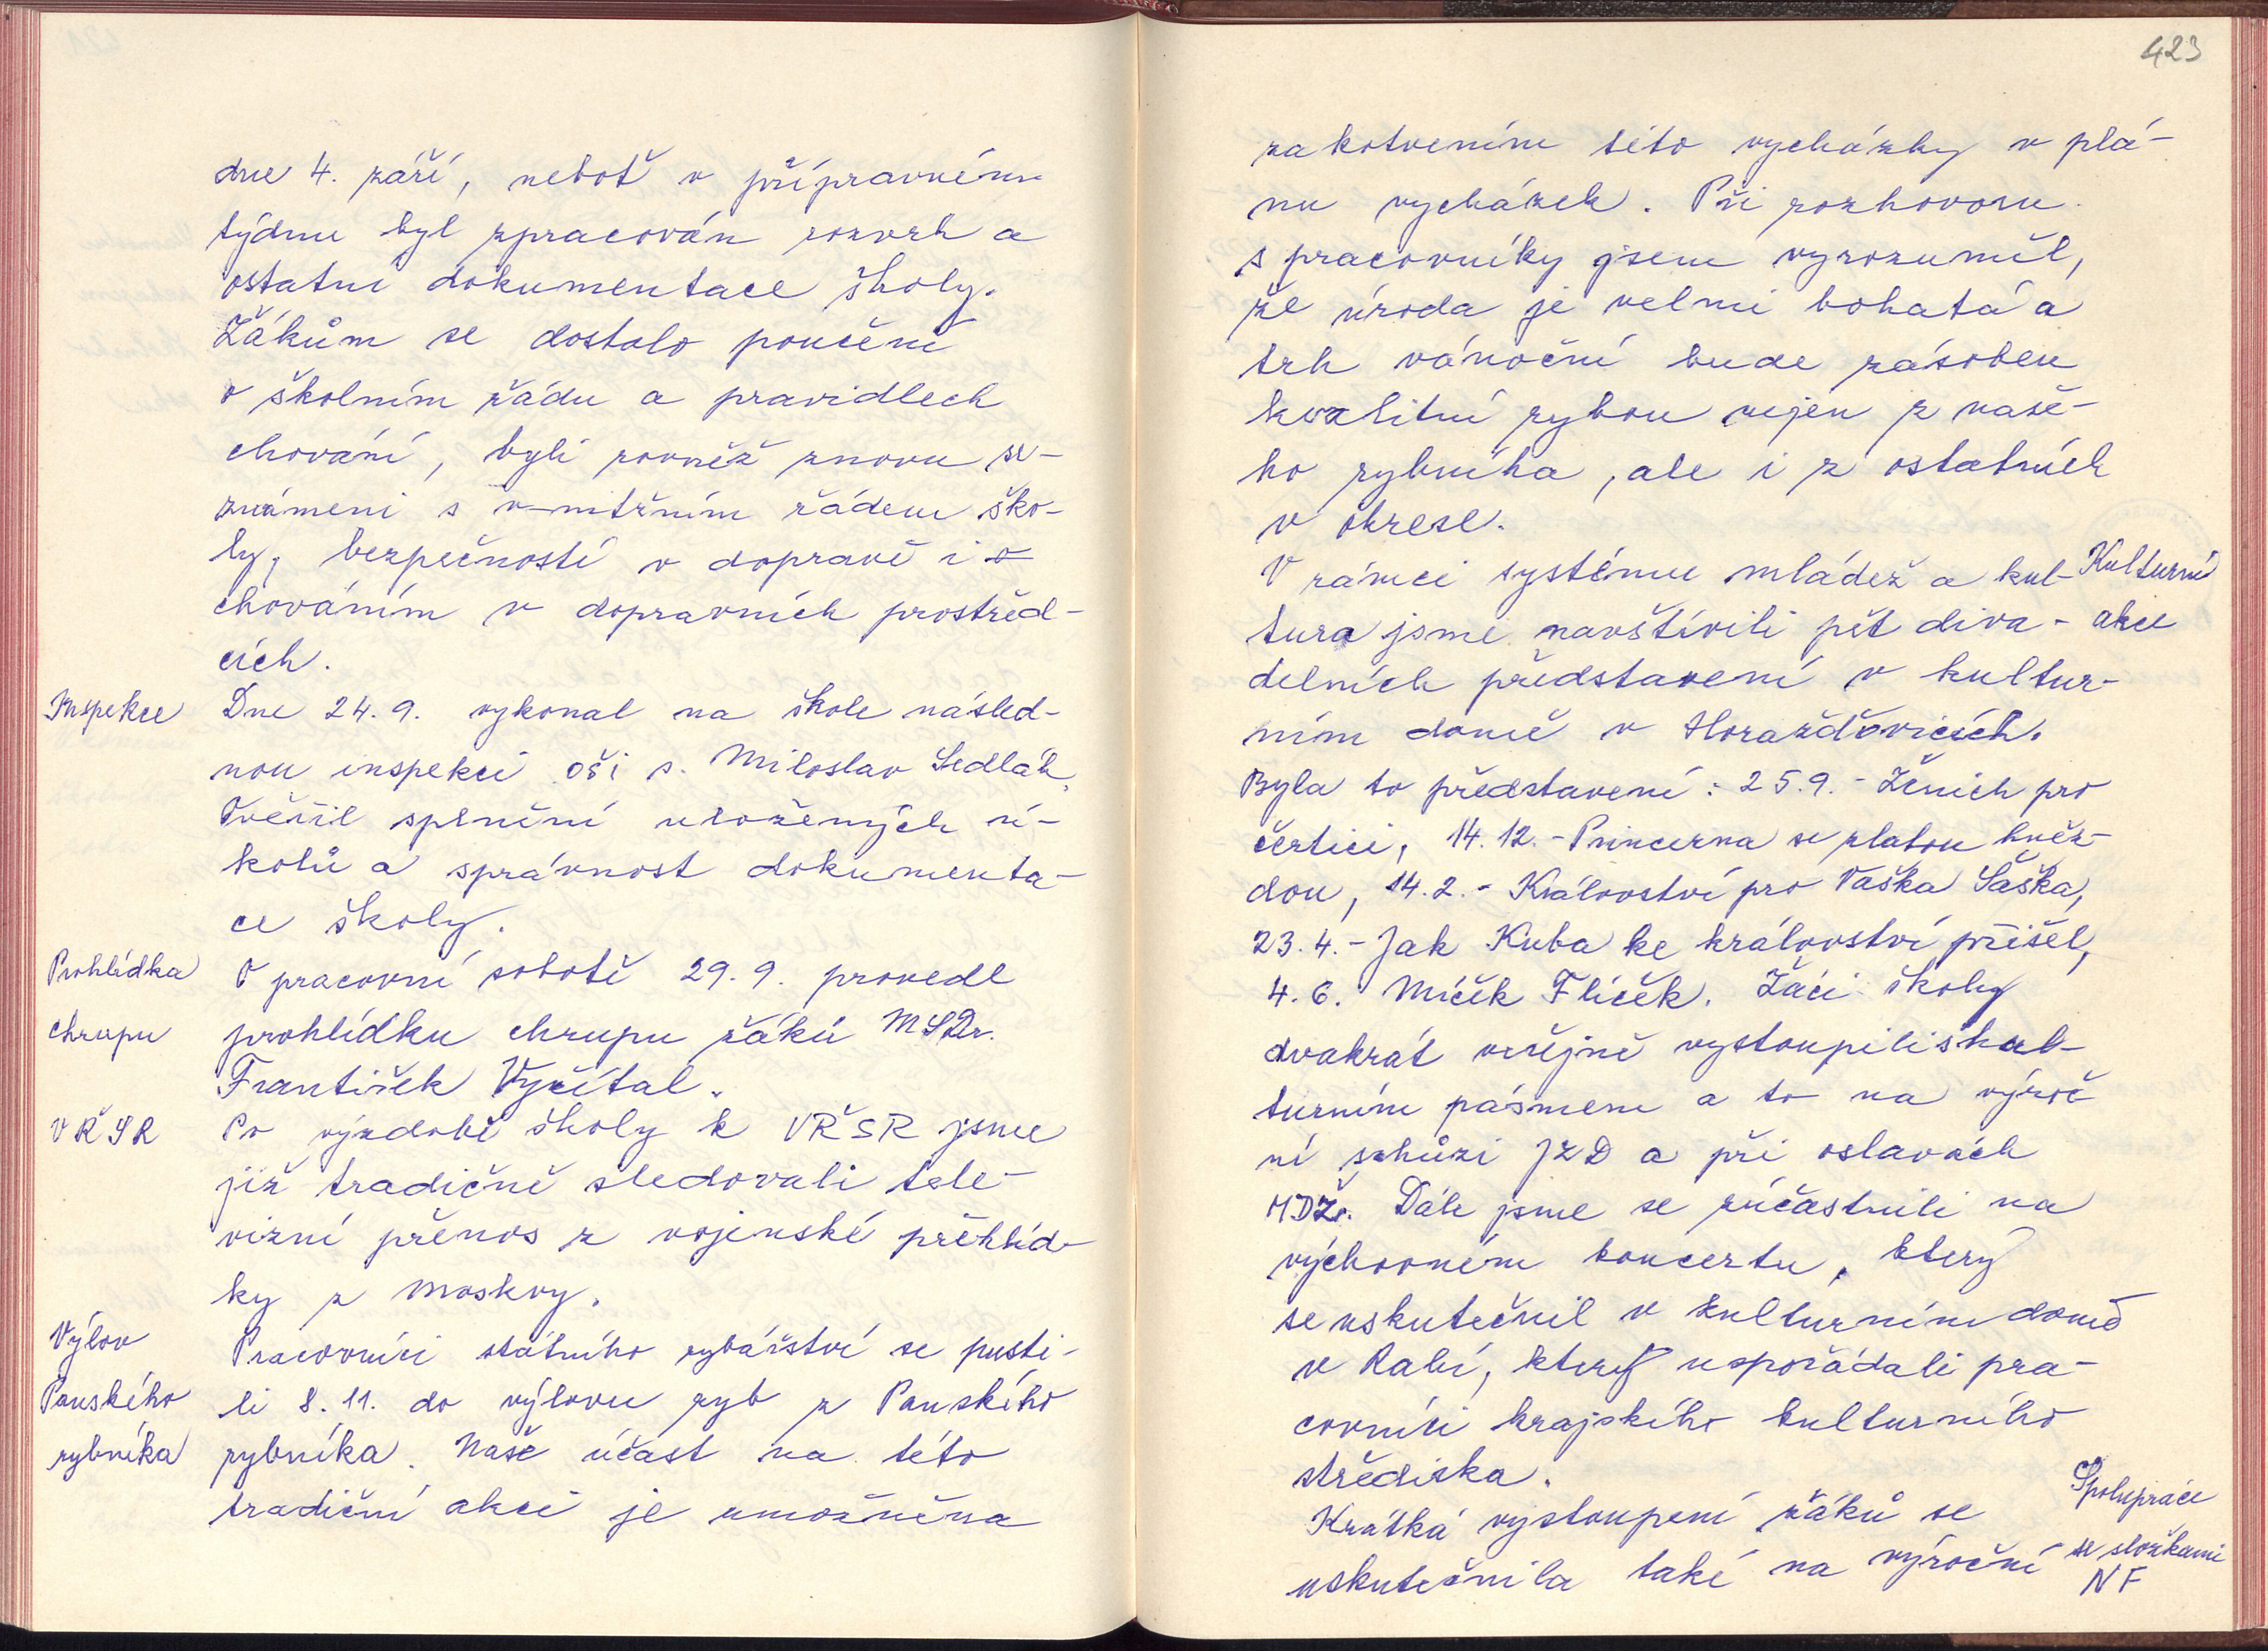 dne 4. září, neboť v přípravném
týdnu byl zpracován rozvrh a
ostatní dokumentace školy.
Žákům se dostalo poučení
o školním řádu a pravidlech
chování, byli rovněž znovu se-
známeni s vnitřním řádem ško-
ly, bezpečností v dopravě i o
chováním v dopravních prostřed-
cích.
Inspekce
Dne 24. 9. vykonal na škole násled-
nou inspekci oši s. Miloslav Sedlák.
Ověřil splnění uložených ú-
kolů a správnost dokumenta-
ce školy.
Prohlídka
chrupu
V pracovní sobotě 29. 9. provedl
prohlídku chrupu žáků MSDr.
František Vyčítal.
VŘSR
Po výzdobě školy k VŘSR jsme
již tradičně sledovali tele-
vizní přenos z vojenské přehlíd-
ky z Moskvy.
Výlov
Panského
rybníka
Pracovníci státního rybářství se pusti-
li 8. 11. do výlovu ryb z Panského
rybníka. Naše účast na této
tradiční akci je umožněna
423
zakotvením této vycházky v plá-
nu vycházek. Při rozhovoru
s pracovníky jsem vyrozuměl,
že úroda je velmi bohatá a
trh vánoční bude zásoben
kvalitní rybou nejen z naše-
ho rybníka, ale i z ostatních
v okrese.
Kulturní
akce
V rámci systému mládež a kul-
tura jsme navštívili pět diva-
delních představení v kultur-
ním domě v Horažďovicích.
Byla to představení: 25. 9. - Ženich pro
čertici, 14. 12. - Princezna se zlatou hvěz-
dou, 14. 2. - Království pro Vaška Šaška,
23. 4. - Jak Kuba ke království přišel,
4. 6. Míček Flíček. Žáci školy
dvakrát veřejně vystoupili s kul-
turním pásmem a to na výroč
ní schůzi JZD a při oslavách
MDŽ. Dále jsme se zúčastnili na
výchovném koncertu, který
se uskutečnil v kulturním domě
v Rabí, který uspořádali pra-
covníci krajského kulturního
střediska.
Spolupráce
se složkami
NF
Krátká vystoupení žáků se
uskutečnila také na výroční